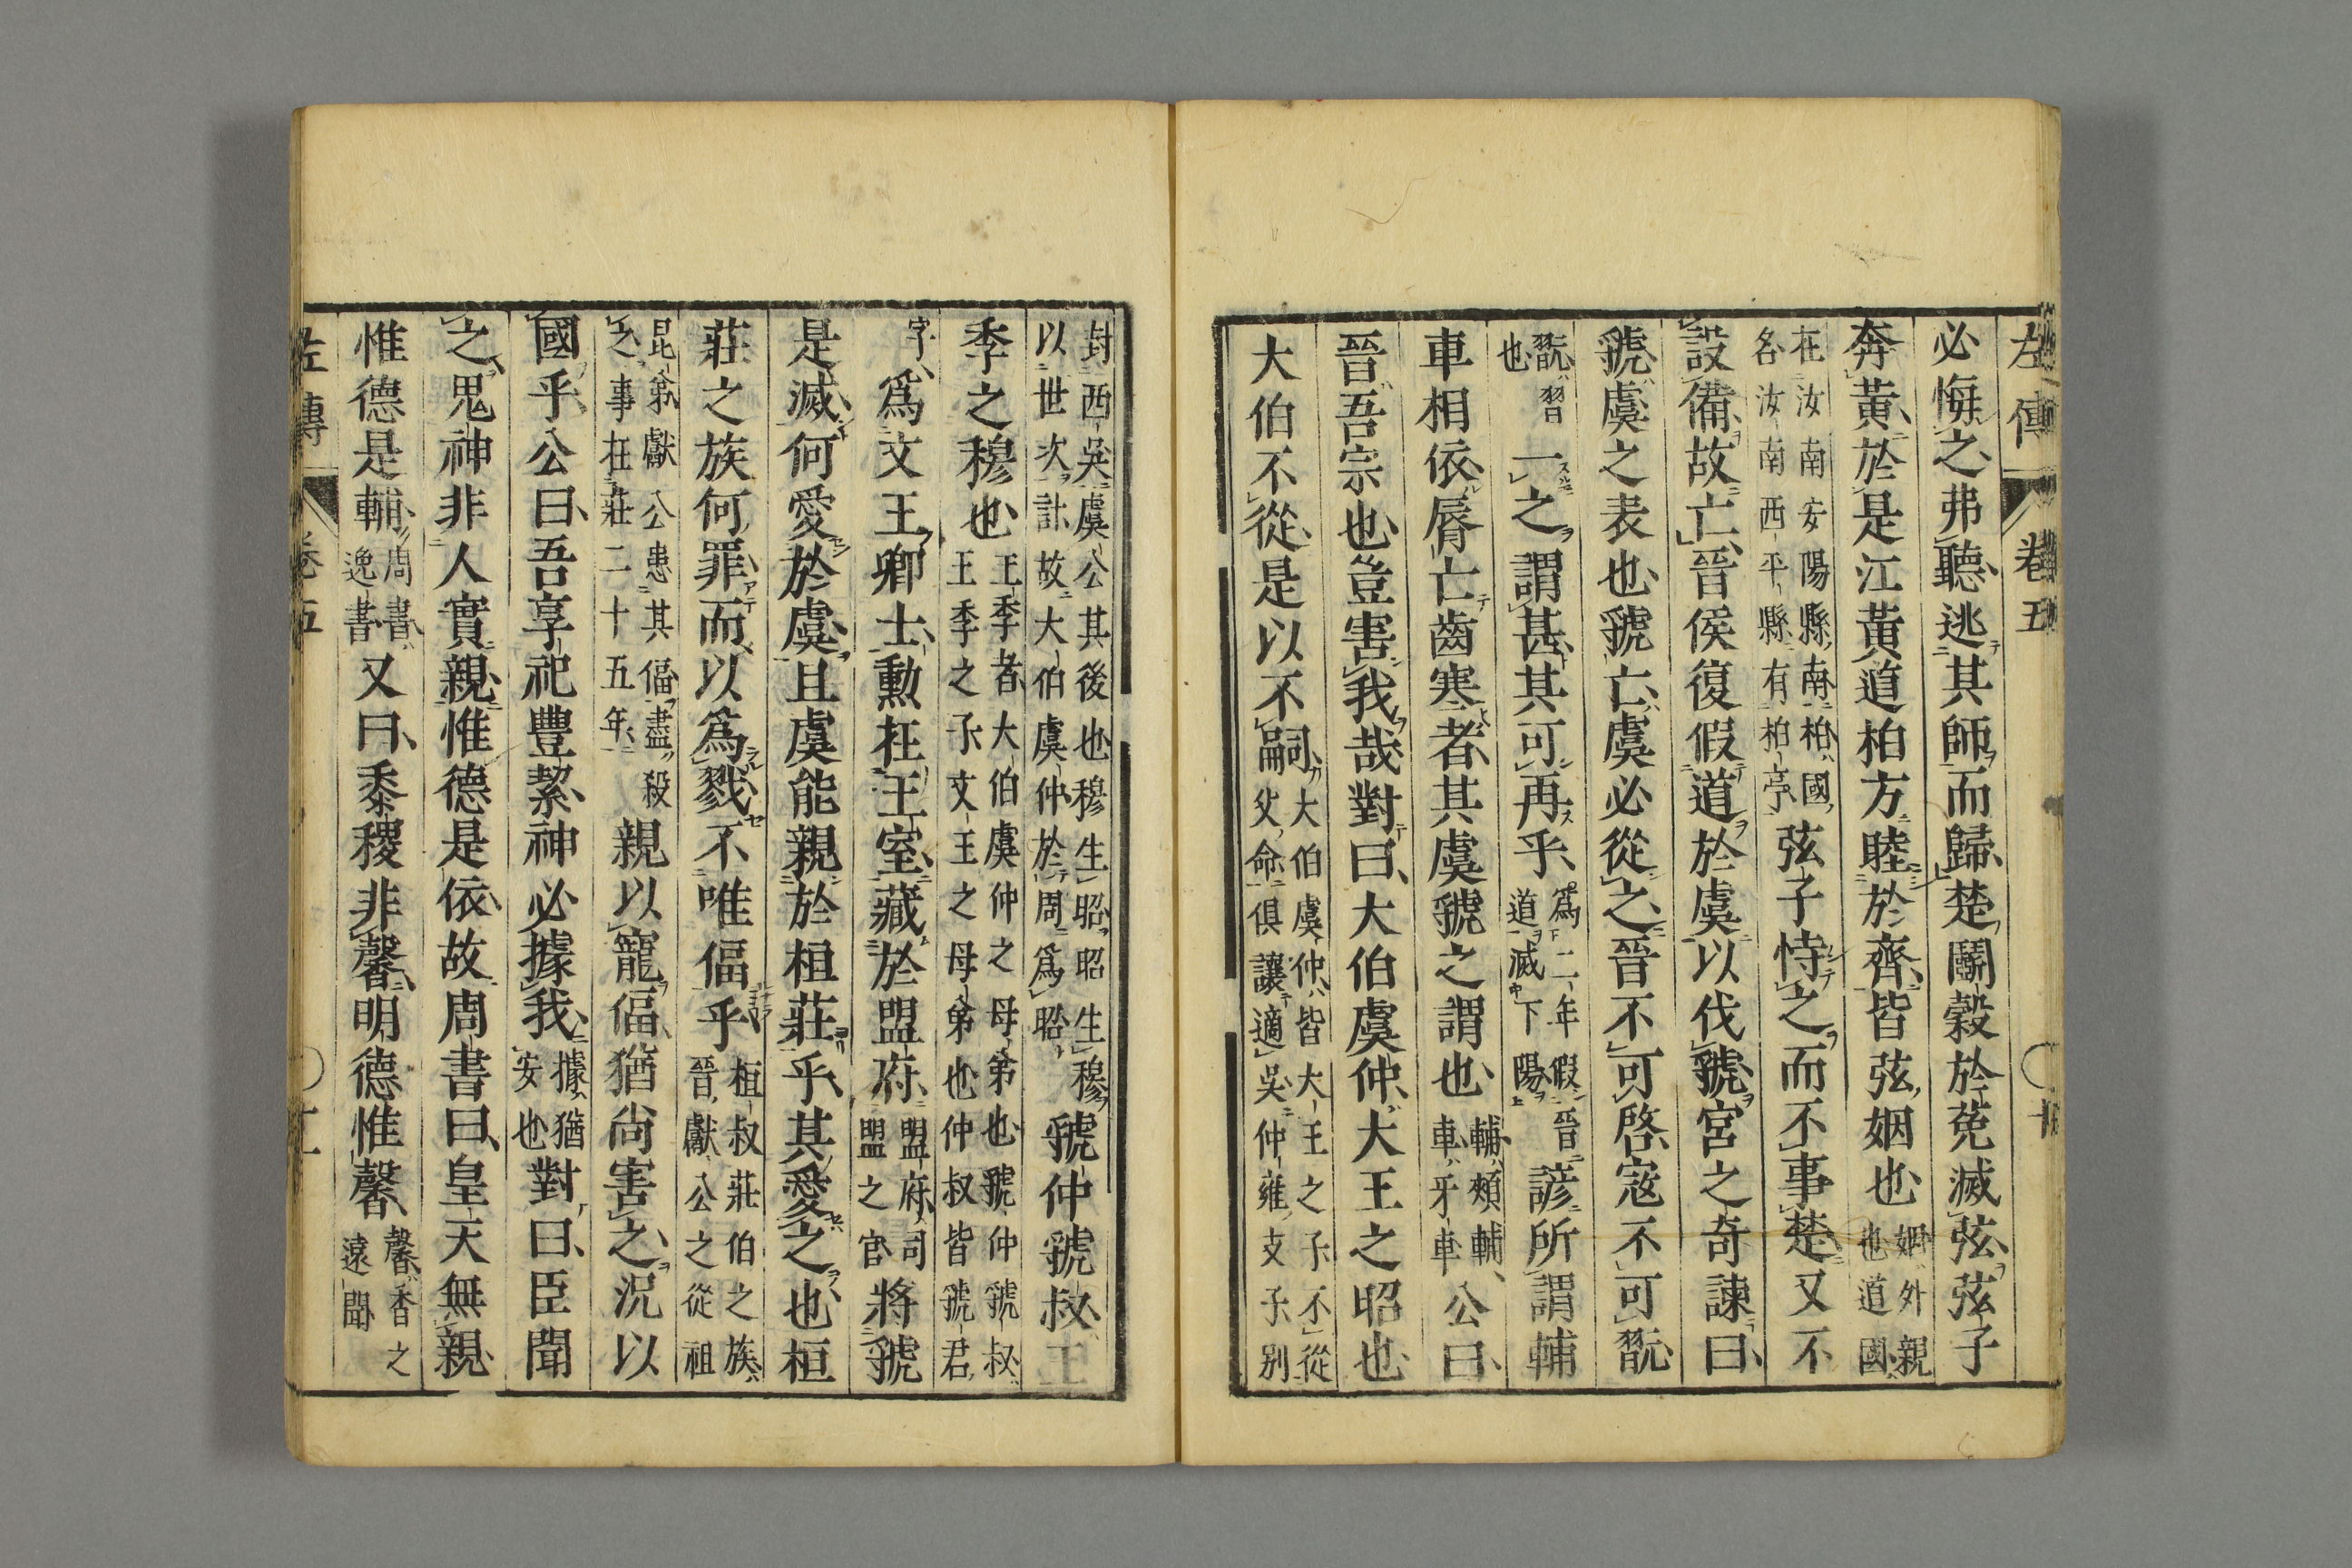 左傳 卷五 十
必悔之弗聽逃其師而歸楚鬭穀於菟滅弦弦子
奔黃於是江黃道柏方睦於齊皆弦姻也姻外親也道國
在汝南安陽縣南柏國名汝南西平縣有柏亭弦子恃之而不事楚又不
設備故亡晉侯復假道於虞以伐虢宮之奇諫曰
虢虞之表也虢亡虞必從之晉不可啓寇不可翫
翫習也一之謂甚其可再乎爲二年假晉道滅下陽諺所謂輔
車相依脣亡齒寒者其虞虢之謂也輔頰輔車牙車公曰
晉吾宗也豈害我哉對曰大伯虞仲大王之昭也
大伯不從是以不嗣大伯虞仲皆大王之子不從父命俱讓適吳仲雍支子別
封西吳虞公其後也穆生昭昭生穆以世次計故大伯虞仲於周爲昭虢仲虢叔王
季之穆也王季者大伯虞仲之母弟也虢仲虢叔王季之子文王之母弟也仲叔皆虢君
字爲文王卿士勳在王室藏於盟府盟府司盟之官將虢
是滅何愛於虞且虞能親於桓莊乎其愛之也桓
莊之族何罪而以爲戮不唯偪乎桓叔莊伯之族晉獻公之從祖
昆弟獻公患其偪盡殺之事在莊二十五年親以寵偪猶尚害之況以
國乎公曰吾享祀豐絜神必據我據猶安也對曰臣聞
之鬼神非人實親惟德是依故周書曰皇天無親
惟德是輔周書逸書又曰黍稷非馨明德惟馨馨香之遠聞
左傳 卷五